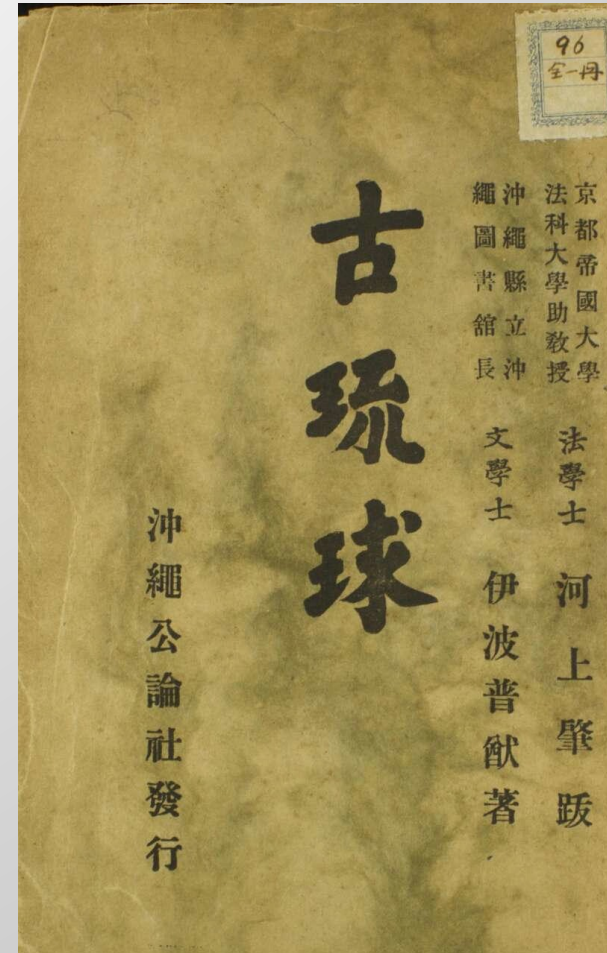 96
全一冊
京都帝國大學
法科大學助敎授
法學士 河上肇跋
沖繩縣立沖
繩圖書館長
文學士 伊波普猷著
古琉球
沖繩公論社發行